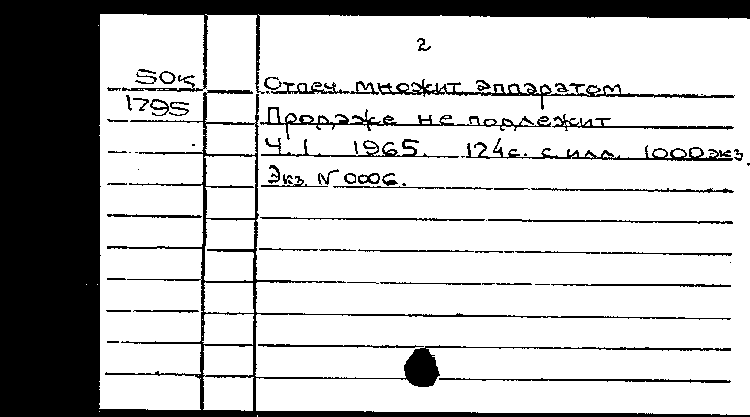 2
50К Отпеч. множит аппаратом
1795 Продаже не подлежит
Ч. I. 1965. 124с. с илл. 1000экз.
Экз. N 0006.